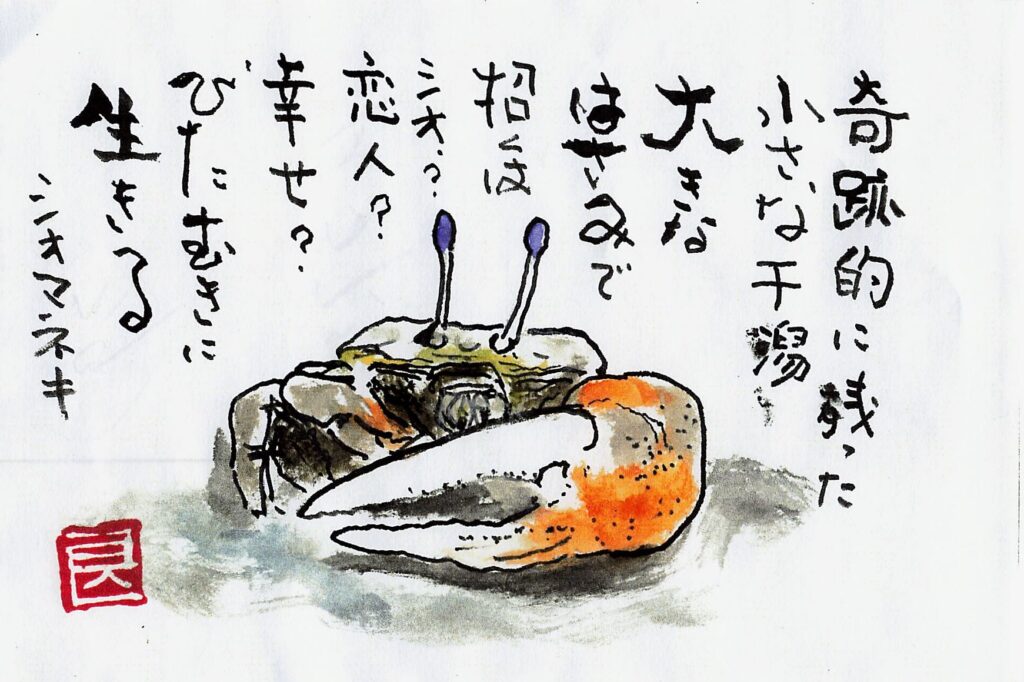 奇跡的に残った
小さな干潟
大きな
はさみで
招くは
シオ？
恋人？
幸せ？
ひたむきに
生きる
シオマネキ
良